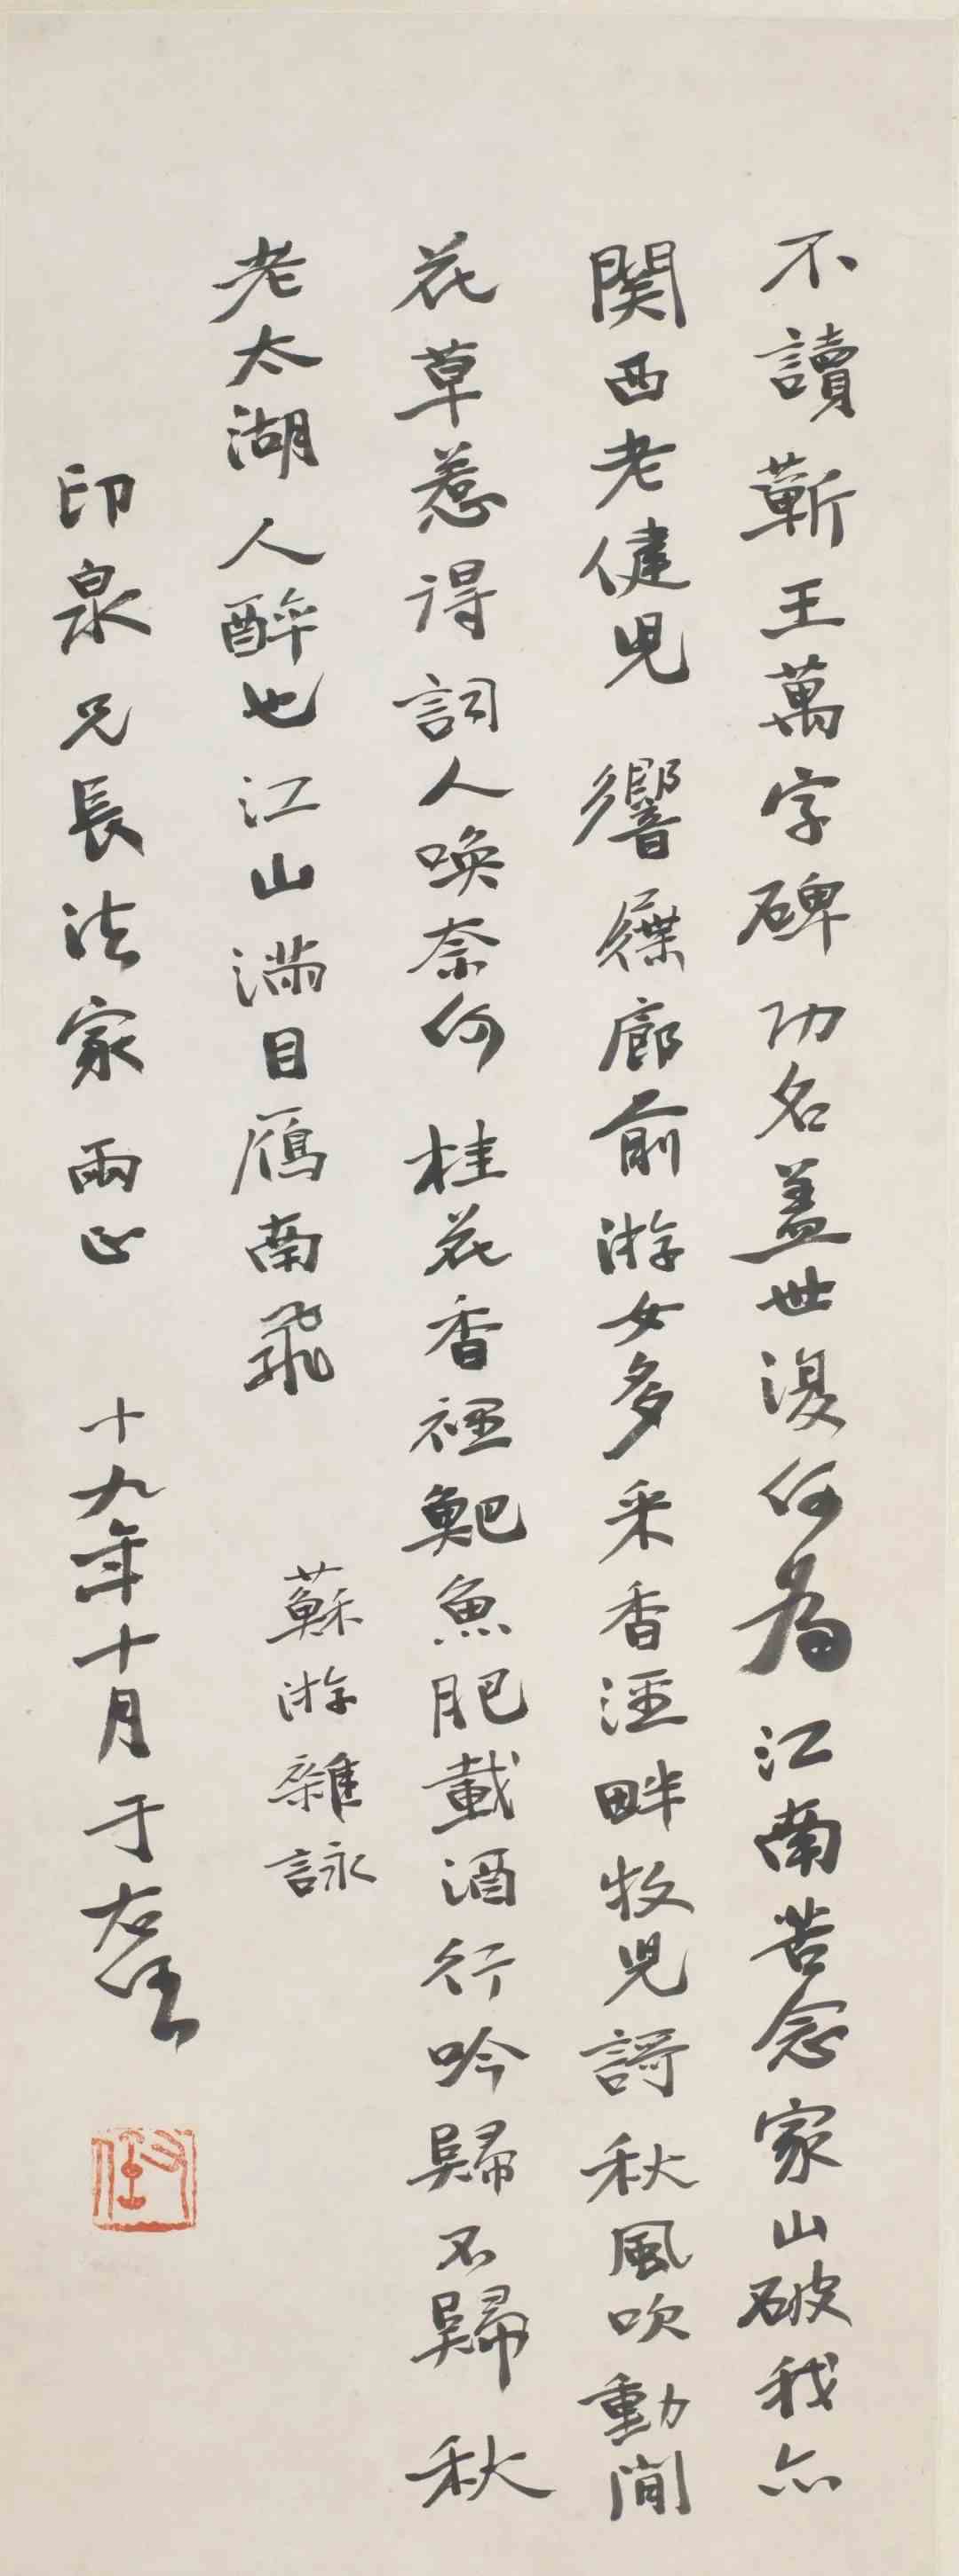 不讀蘄王萬字碑功名蓋世復何為江南苦念家山破我亦
関西老健児響屧廊前游女多采香涇畔牧児謌秋風吹動閒
花草惹得詞人喚奈何桂花香裡鲃魚肥載酒行吟歸不歸秋
老太湖人醉也江山滿目鴈南飛
蘇游雜詠
印泉兄長法家兩正
十九年十月于右任